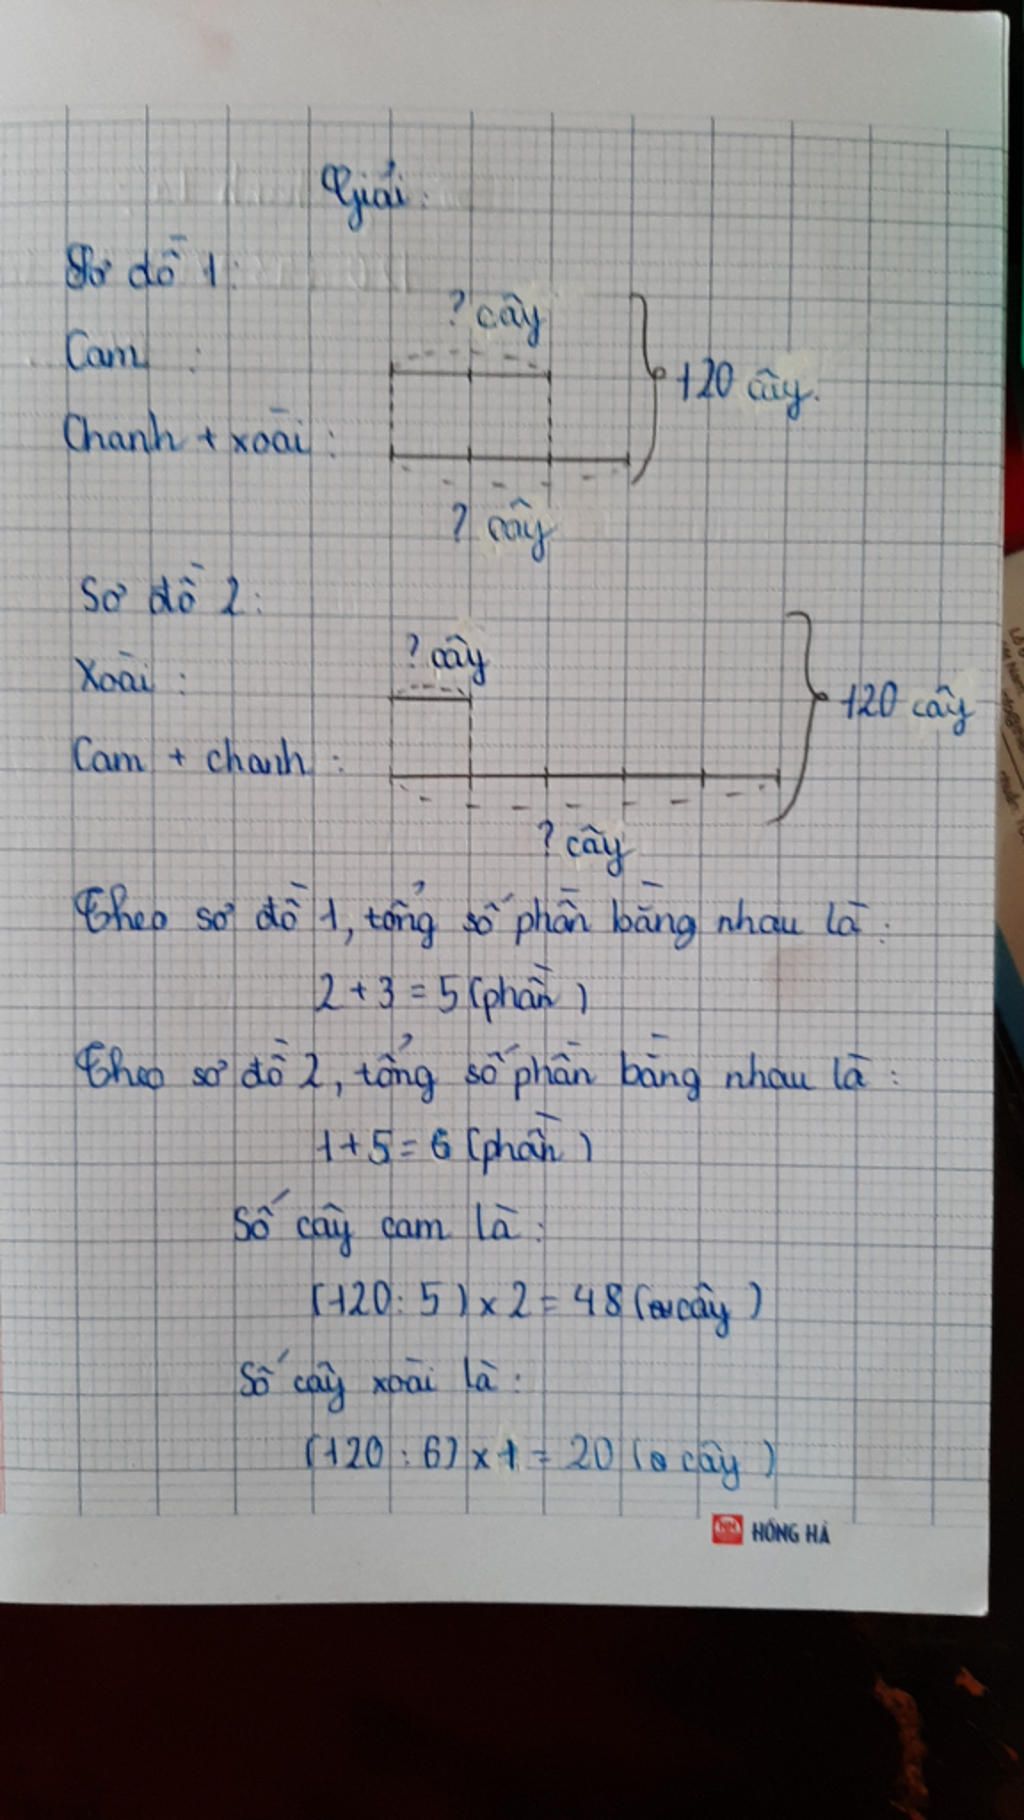 Giải:
Sơ đồ 1:
? cây
Cam :
120 cây.
Chanh + xoài :
? cây
Sơ đồ 2:
? cây
Xoài :
120 cây
Cam + chanh :
? cây
Theo sơ đồ 1, tổng số phần bằng nhau là :
2 + 3 = 5 (phần)
Theo sơ đồ 2, tổng số phần bằng nhau là :
1 + 5 = 6 (phần)
Số cây cam là :
(120 : 5) x 2 = 48 (cây)
Số cây xoài là :
(120 : 6) x 1 = 20 (cây)
HỒNG HÀ